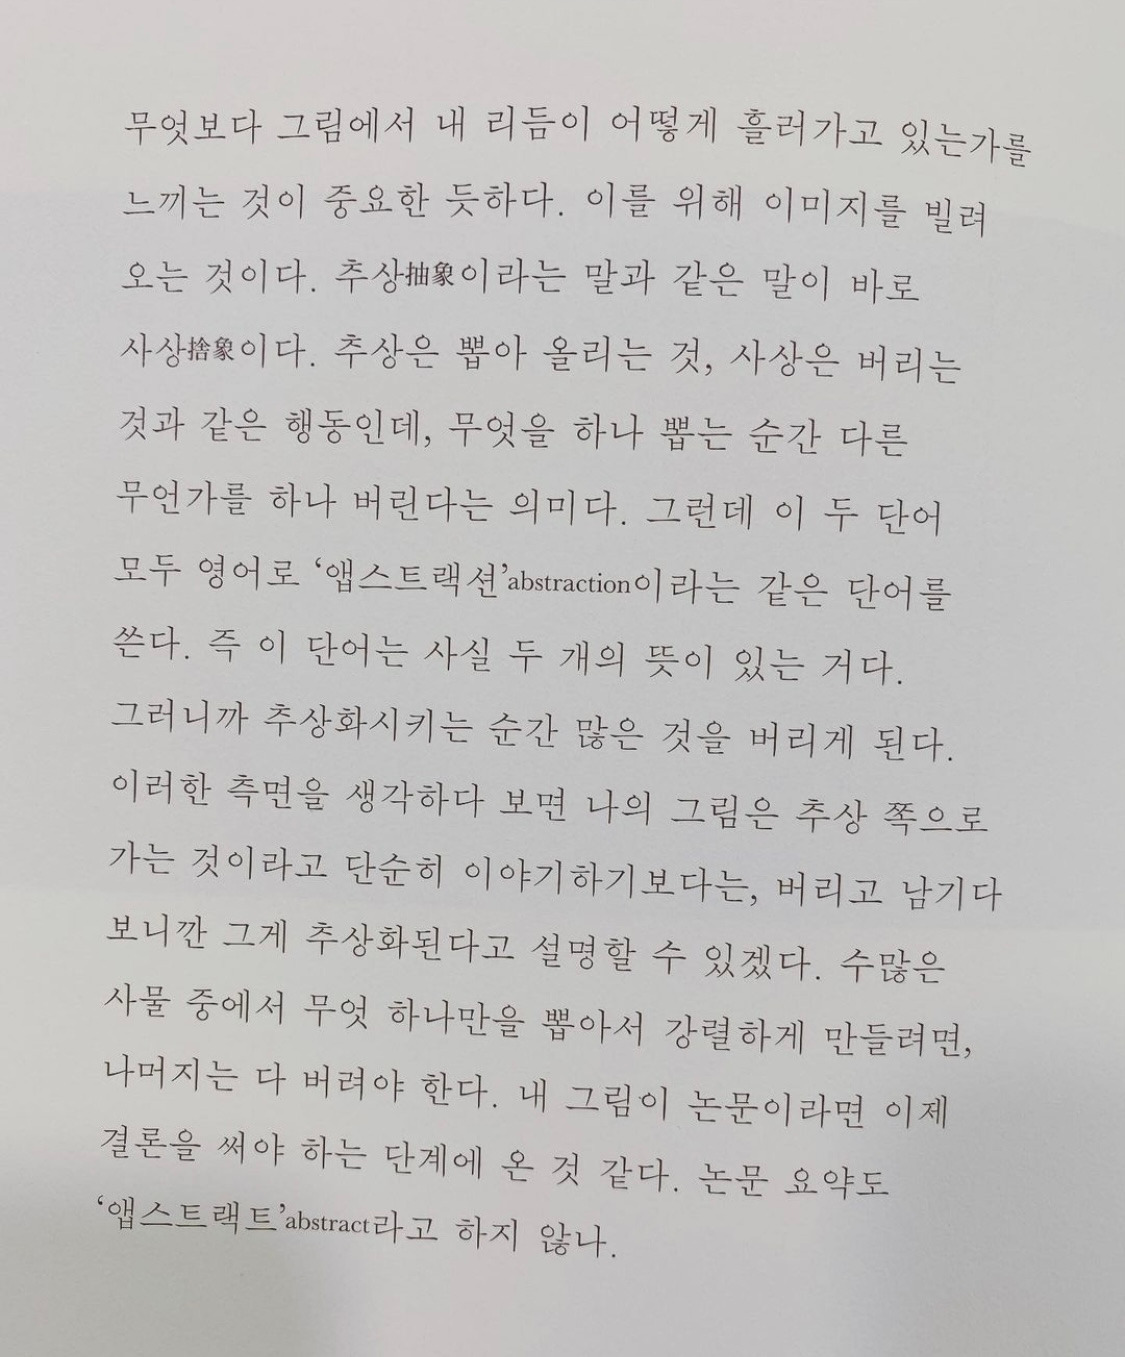 무엇보다 그림에서 내 리듬이 어떻게 흘러가고 있는가를
느끼는 것이 중요한 듯하다. 이를 위해 이미지를 빌려
오는 것이다. 추상抽象이라는 말과 같은 말이 바로
사상捨象이다. 추상은 뽑아 올리는 것, 사상은 버리는
것과 같은 행동인데, 무엇을 하나 뽑는 순간 다른
무언가를 하나 버린다는 의미다. 그런데 이 두 단어
모두 영어로 ‘앱스트랙션’abstraction이라는 같은 단어를
쓴다. 즉 이 단어는 사실 두 개의 뜻이 있는 거다.
그러니까 추상화시키는 순간 많은 것을 버리게 된다.
이러한 측면을 생각하다 보면 나의 그림은 추상 쪽으로
가는 것이라고 단순히 이야기하기보다는, 버리고 남기다
보니깐 그게 추상화된다고 설명할 수 있겠다. 수많은
사물 중에서 무엇 하나만을 뽑아서 강렬하게 만들려면,
나머지는 다 버려야 한다. 내 그림이 논문이라면 이제
결론을 써야 하는 단계에 온 것 같다. 논문 요약도
‘앱스트랙트’abstract라고 하지 않나.